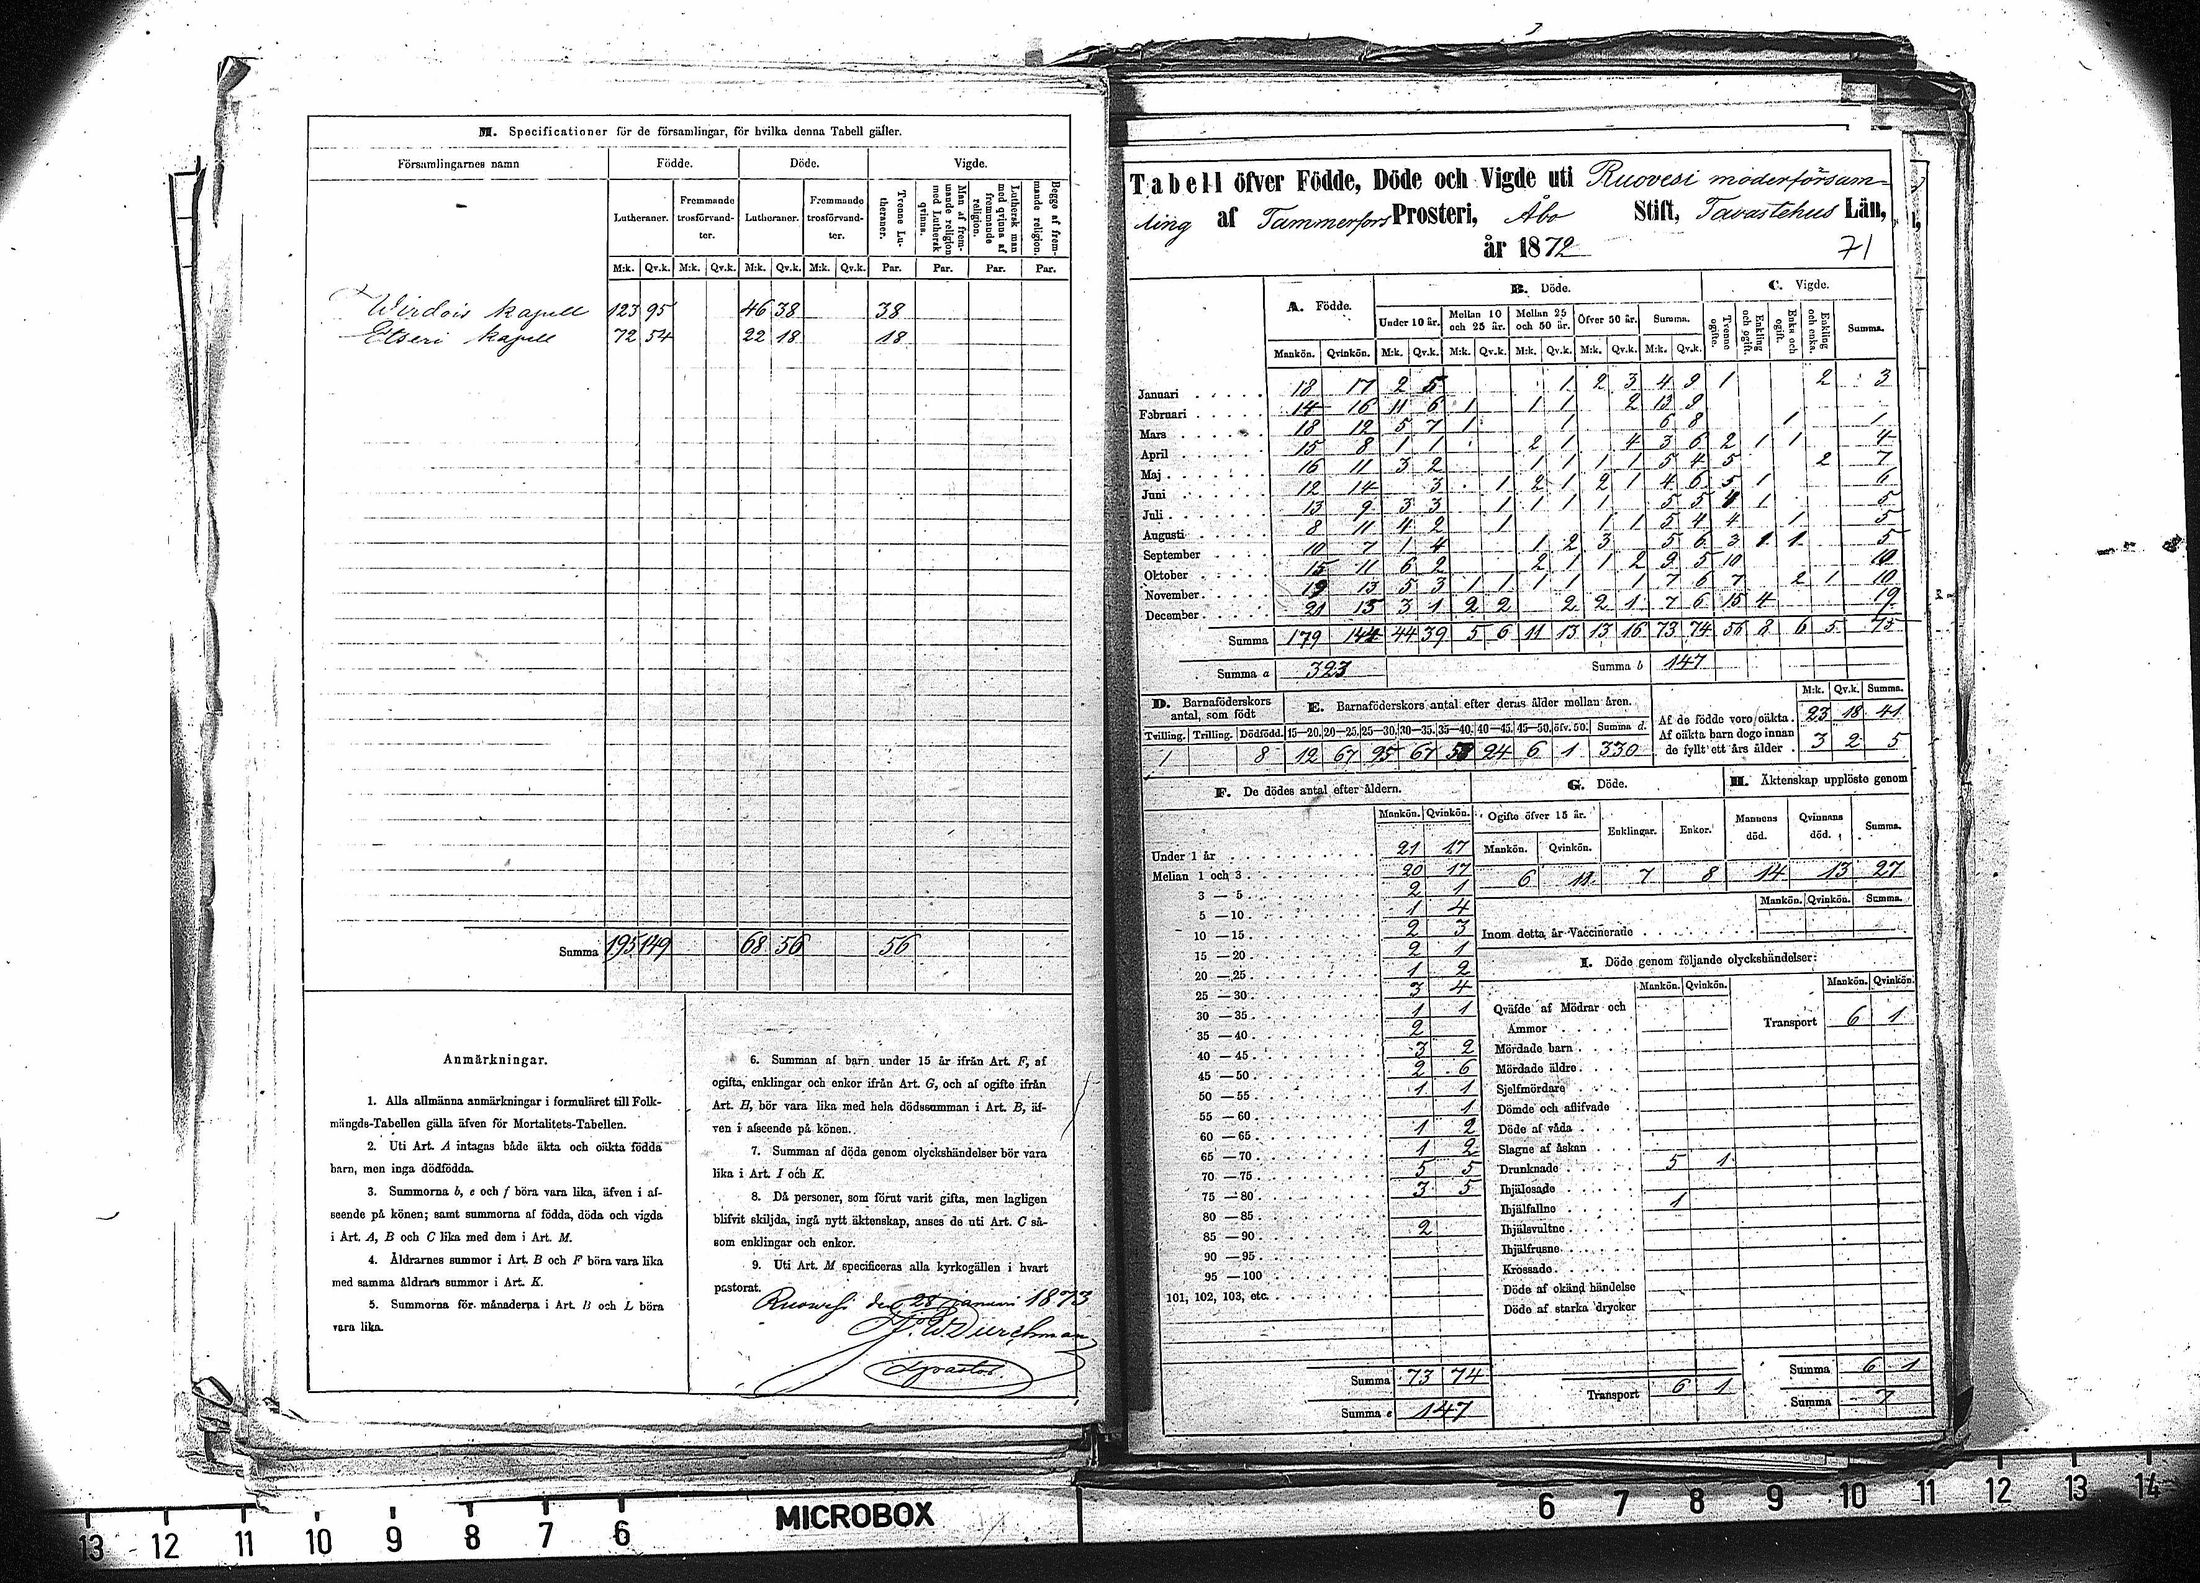 M. Specificationer för de församlingar, för hvilka denna Tabell gäller.
Församlingarnes namn Födde. Döde. Vigde.
Lutheraner. Fremmande trosförvandter. Lutheraner. Fremmande trosförvandter. Tvenne Lutheraner. Man af fremmande religion med Luthersk qvinna. Luthersk man med qvinna af fremmande religion. Begge af fremmande religion.
M:k. Qv.k. M:k. Qv.k. M:k. Qv.k. M:k. Qv.k. Par. Par. Par. Par.
Wirdois kapell 123 95 46 38 38
Etseri kapell 72 54 22 18 18
Summa 195 149 68 56 56
Anmärkningar.
1. Alla allmänna anmärkningar i formuläret till Folk-
mängds-Tabellen gälla äfven för Mortalitets-Tabellen.
2. Uti Art. A intagas både äkta och oäkta födda
barn, men inga dödfödda.
3. Summorna b, e och f böra vara lika, äfven i af-
seende på könen; samt summorna af födda, döda och vigda
i Art. A, B och C lika med dem i Art. M.
4. Åldrarnes summor i Art. B och F böra vara lika
med samma åldrars summor i Art. K.
5. Summorna för månaderna i Art. B och L böra
vara lika.
6. Summan af barn under 15 år ifrån Art. F, af
ogifta, enklingar och enkor ifrån Art. G, och af ogifte ifrån
Art. H, bör vara lika med hela dödssumman i Art. B, äf-
ven i afseende på könen.
7. Summan af döda genom olyckshändelser bör vara
lika i Art. I och K.
8. Då personer, som förut varit gifta, men lagligen
blifvit skiljda, ingå nytt äktenskap, anses de uti Art. C så-
som enklingar och enkor.
9. Uti Art. M specificeras alla kyrkogällen i hvart
pastorat.
Ruovesi den 28 januari 1873
F. W. Durchman
Tabell öfver Födde, Döde och Vigde uti Ruovesi moderförsam-
ling af Tammerfors Prosteri, Åbo Stift, Tavastehus Län,
år 1872 71
A. Födde. B. Döde. C. Vigde.
Under 10 år. Mellan 10 och 25 år. Mellan 25 och 50 år. Öfver 50 år. Summa. Tvenne ogifte. Enkling och ogift. Enka och ogift. Enkling och enka. Summa.
Mankön. Qvinkön. M:k. Qv.k. M:k. Qv.k. M:k. Qv.k. M:k. Qv.k. M:k. Qv.k.
Januari 18 17 2 5 1 2 3 4 9 1 2 3
Februari 14 16 11 6 1 1 1 2 13 9
Mars 18 12 5 7 1 1 6 8 1 1
April 15 8 1 1 2 1 4 3 6 2 1 1 4
Maj 16 11 3 2 1 1 1 1 5 4 5 2 7
Juni 12 14 3 1 2 1 2 1 4 6 5 1 6
Juli 13 9 3 3 1 1 1 1 5 5 4 1 5
Augusti 8 11 4 2 1 1 1 5 4 4 1 5
September 10 7 1 4 1 2 3 5 6 3 1 1 5
Oktober 15 11 6 2 2 1 1 2 9 5 10 10
November 19 13 5 3 1 1 1 1 1 7 6 7 2 1 10
December 21 15 3 1 2 2 2 2 1 7 6 15 4 19
Summa 179 144 44 39 5 6 11 13 13 16 73 74 56 8 6 5 75
Summa a 323 Summa b 147
D. Barnaföderskors antal, som födt
Tvilling. Trilling. Dödfödd.
1 8
E. Barnaföderskors antal efter deras ålder mellan åren.
15—20. 20—25. 25—30. 30—35. 35—40. 40—45. 45—50. öfv. 50. Summa d.
12 67 95 67 58 24 6 1 330
M:k. Qv.k. Summa.
Af de födde voro oäkta. 23 18 41
Af oäkta barn dogo innan de fyllt ett års ålder 3 2 5
F. De dödes antal efter åldern.
Mankön. Qvinkön.
Under 1 år 21 17
Mellan 1 och 3 20 17
3 — 5 2 1
5 — 10 1 4
10 — 15 2 3
15 — 20 2 1
20 — 25 1 2
25 — 30 3 4
30 — 35 1 1
35 — 40 2
40 — 45 3 2
45 — 50 2 6
50 — 55 1 1
55 — 60 1
60 — 65 1 2
65 — 70 1 2
70 — 75 5 5
75 — 80 3 5
80 — 85
85 — 90 2
90 — 95
95 — 100
101, 102, 103, etc.
Summa 73 74
Summa e 147
G. Döde.
Ogifte öfver 15 år. Enklingar. Enkor.
Mankön. Qvinkön.
6 11 7 8
H. Äktenskap upplöste genom
Mannens död. Qvinnans död. Summa.
14 13 27
Mankön. Qvinkön. Summa.
Inom detta år Vaccinerade
I. Döde genom följande olyckshändelser:
Mankön. Qvinkön. Mankön. Qvinkön.
Qväfde af Mödrar och Ammor Transport 6 1
Mördade barn
Mördade äldre
Sjelfmördare
Dömde och aflifvade
Döde af våda
Slagne af åskan
Drunknade 5 1
Ihjälosade
Ihjälfallne 1
Ihjälsvultne
Ihjälfrusne
Krossade
Döde af okänd händelse
Döde af starka drycker
Transport 6 1
Summa 6 1
Summa 7
13 12 11 10 9 8 7 6 MICROBOX 6 7 8 9 10 11 12 13 14